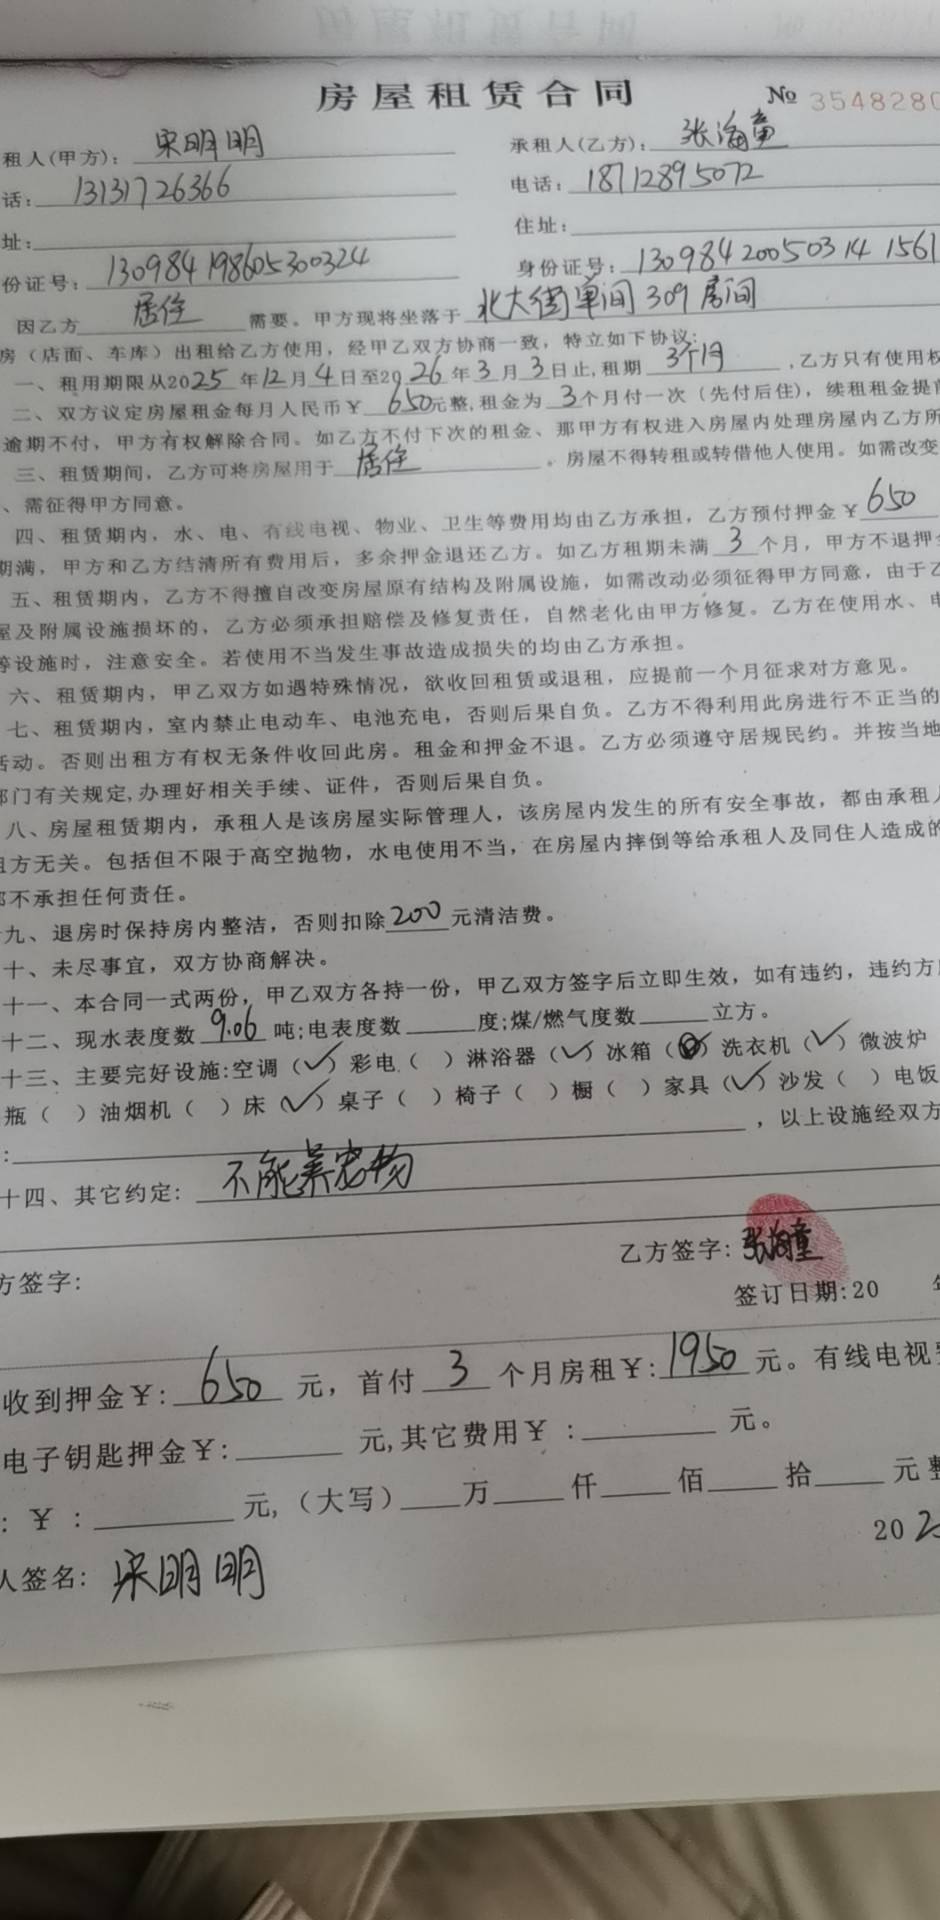 房屋租赁合同 № 3548280
租人(甲方): 宋明明 承租人(乙方): 张海童
话: 13131726366 电话: 18712895072
址: 住址:
份证号: 130984198605300324 身份证号: 130984200503141561
因乙方 居住 需要。甲方现将坐落于 北大街单间309房间
房（店面、车库）出租给乙方使用，经甲乙双方协商一致，特立如下协议:
一、租用期限从2025年12月4日至2026年3月3日止,租期 3个月 ,乙方只有使用权
二、双方议定房屋租金每月人民币￥ 650元整,租金为 3个月付一次（先付后住），续租租金提前
逾期不付，甲方有权解除合同。如乙方不付下次的租金、那甲方有权进入房屋内处理房屋内乙方所
三、租赁期间，乙方可将房屋用于 居住 。房屋不得转租或转借他人使用。如需改变
、需征得甲方同意。
四、租赁期内，水、电、有线电视、物业、卫生等费用均由乙方承担，乙方预付押金￥650
期满，甲方和乙方结清所有费用后，多余押金退还乙方。如乙方租期未满 3 个月，甲方不退押金
五、租赁期内，乙方不得擅自改变房屋原有结构及附属设施，如需改动必须征得甲方同意，由于乙
屋及附属设施损坏的，乙方必须承担赔偿及修复责任，自然老化由甲方修复。乙方在使用水、电
等设施时，注意安全。若使用不当发生事故造成损失的均由乙方承担。
六、租赁期内，甲乙双方如遇特殊情况，欲收回租赁或退租，应提前一个月征求对方意见。
七、租赁期内，室内禁止电动车、电池充电，否则后果自负。乙方不得利用此房进行不正当的
活动。否则出租方有权无条件收回此房。租金和押金不退。乙方必须遵守居规民约。并按当地
部门有关规定,办理好相关手续、证件，否则后果自负。
八、房屋租赁期内，承租人是该房屋实际管理人，该房屋内发生的所有安全事故，都由承租人
租方无关。包括但不限于高空抛物，水电使用不当，在房屋内摔倒等给承租人及同住人造成的
都不承担任何责任。
九、退房时保持房内整洁，否则扣除200元清洁费。
十、未尽事宜，双方协商解决。
十一、本合同一式两份，甲乙双方各持一份，甲乙双方签字后立即生效，如有违约，违约方
十二、现水表度数 9.06 吨;电表度数 度;煤/燃气度数 立方。
十三、主要完好设施:空调（✓）彩电（ ）淋浴器（✓）冰箱（ ）洗衣机（✓）微波炉
瓶（ ）油烟机（ ）床（✓）桌子（ ）椅子（ ）橱（ ）家具（✓）沙发（ ）电饭
: ，以上设施经双方
十四、其它约定: 不能养宠物
方签字: 乙方签字: 张海童
签订日期:20
收到押金￥: 650 元，首付 3 个月房租￥:1950元。有线电视
电子钥匙押金￥: 元,其它费用￥ : 元。
: ￥ : 元,（大写） 万 仟 佰 拾 元整
202
人签名: 宋明明